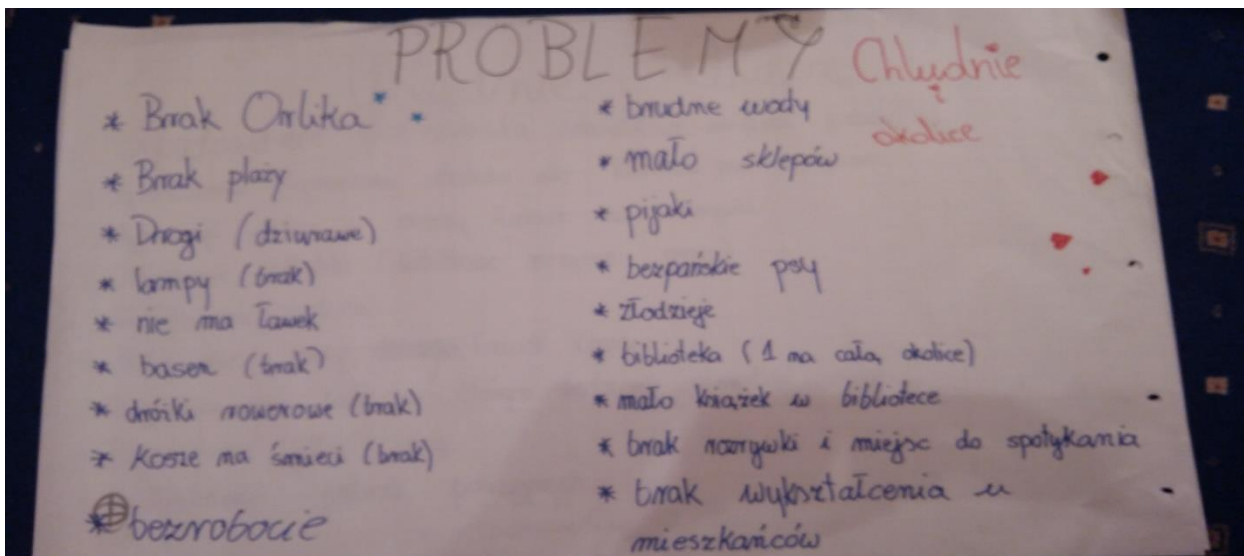 PROBLEMY
Chludnie
i
okolice
* Brak Orlika
* Brak plaży
* Drogi (dziurawe)
* lampy (brak)
* nie ma ławek
* basen (brak)
* dróżki rowerowe (brak)
* kosze na śmieci (brak)
* bezrobocie
* brudne wody
* mało sklepów
* pijaki
* bezpańskie psy
* złodzieje
* biblioteka (1 na całą okolice)
* mało książek w bibliotece
* brak rozrywki i miejsc do spotykania
* brak wykształcenia u
mieszkańców